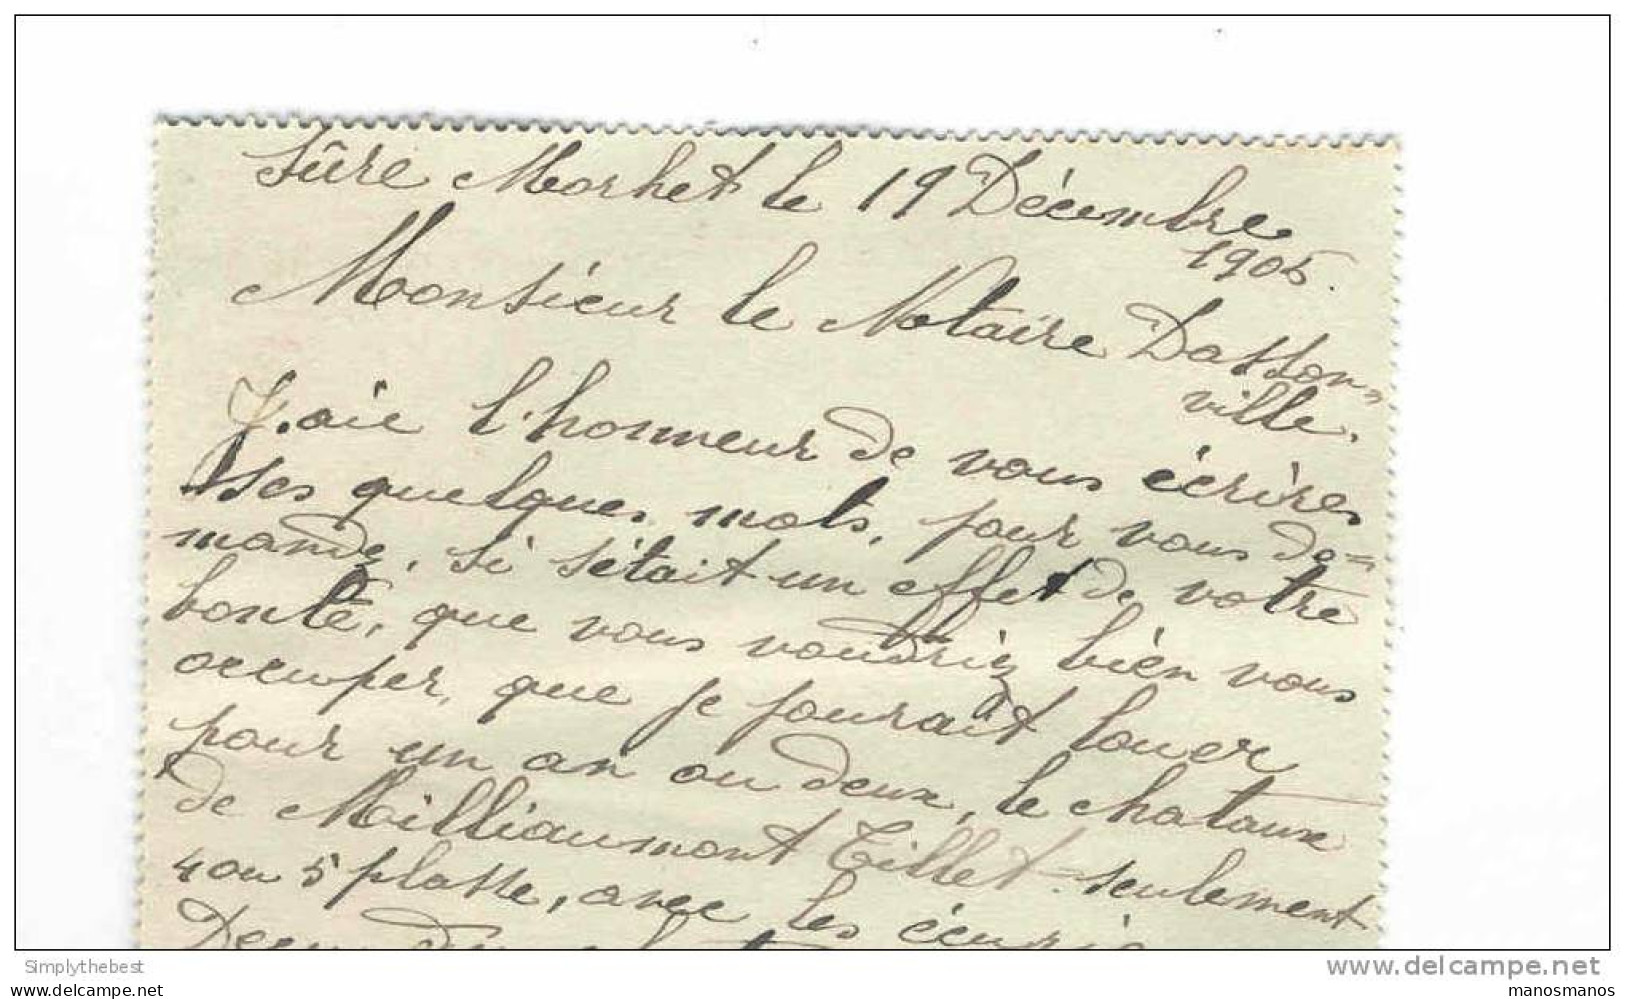 Sûre Morhet le 19 Décembre
1905.
Monsieur le Notaire Dasson=
ville.
J.aie l'honneur de vous écrires
ses quelques mots, pour vous de=
mandez, si s'était un effet de votre
bonté, que vous voudriez bien vous
occuper, que je pourait louer
pour un an ou deux, le chataux
de Milliaumont Tillet seulement
4 ou 5 plasse, avec les écurie
Simplythebest
www.delcampe.net
manosmanos